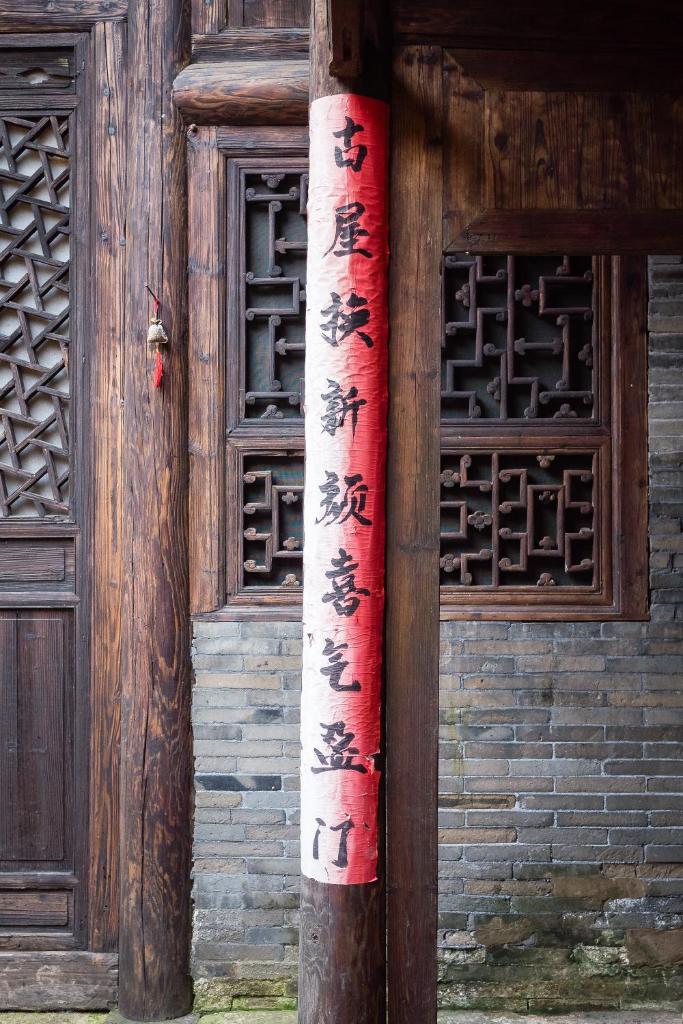 古屋换新颜喜气盈门